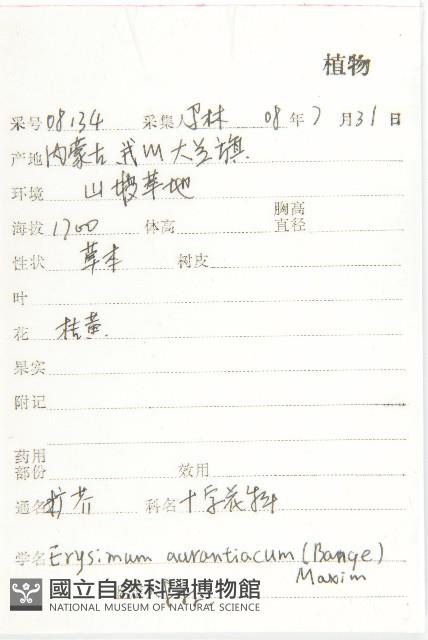 植物
采号 08134 采集人 林 08 年 7 月 31 日
产地 内蒙古 大兰旗
环境 山坡草地
海拔 1700 体高 胸高直径
性状 草本 树皮
叶
花 桔黄
果实
附记
药用部份 效用
通名 芥 科名 十字花科
学名 Erysimum aurantiacum (Bange) Maxim
國立自然科學博物館
NATIONAL MUSEUM OF NATURAL SCIENCE